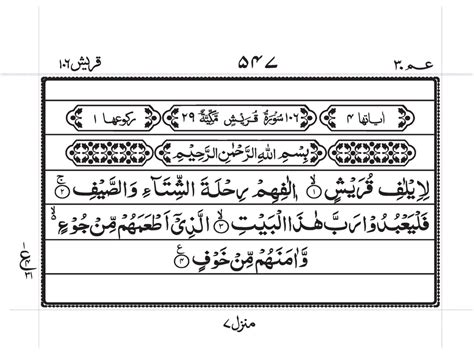 عـم ٣٠ ۵۴۷ قريش ١٠٦
اياتها ۴ ١٠٦ سُوْرَةُ قُرَيْشٍ مَّكِّيَّةٌ ٢٩ ركوعها ١
بِسْمِ اللهِ الرَّحْمٰنِ الرَّحِيْمِ
لِاِيْلٰفِ قُرَيْشٍ ۙ﴿١﴾ اٖلٰفِهِمْ رِحْلَةَ الشِّتَآءِ وَالصَّيْفِ ۚ﴿٢﴾
فَلْيَعْبُدُوْا رَبَّ هٰذَا الْبَيْتِ ۙ﴿٣﴾ الَّذِيْٓ اَطْعَمَهُمْ مِّنْ جُوْعٍ ۙ۬
وَّاٰمَنَهُمْ مِّنْ خَوْفٍ ﴿۴﴾ ع
منزل ٧